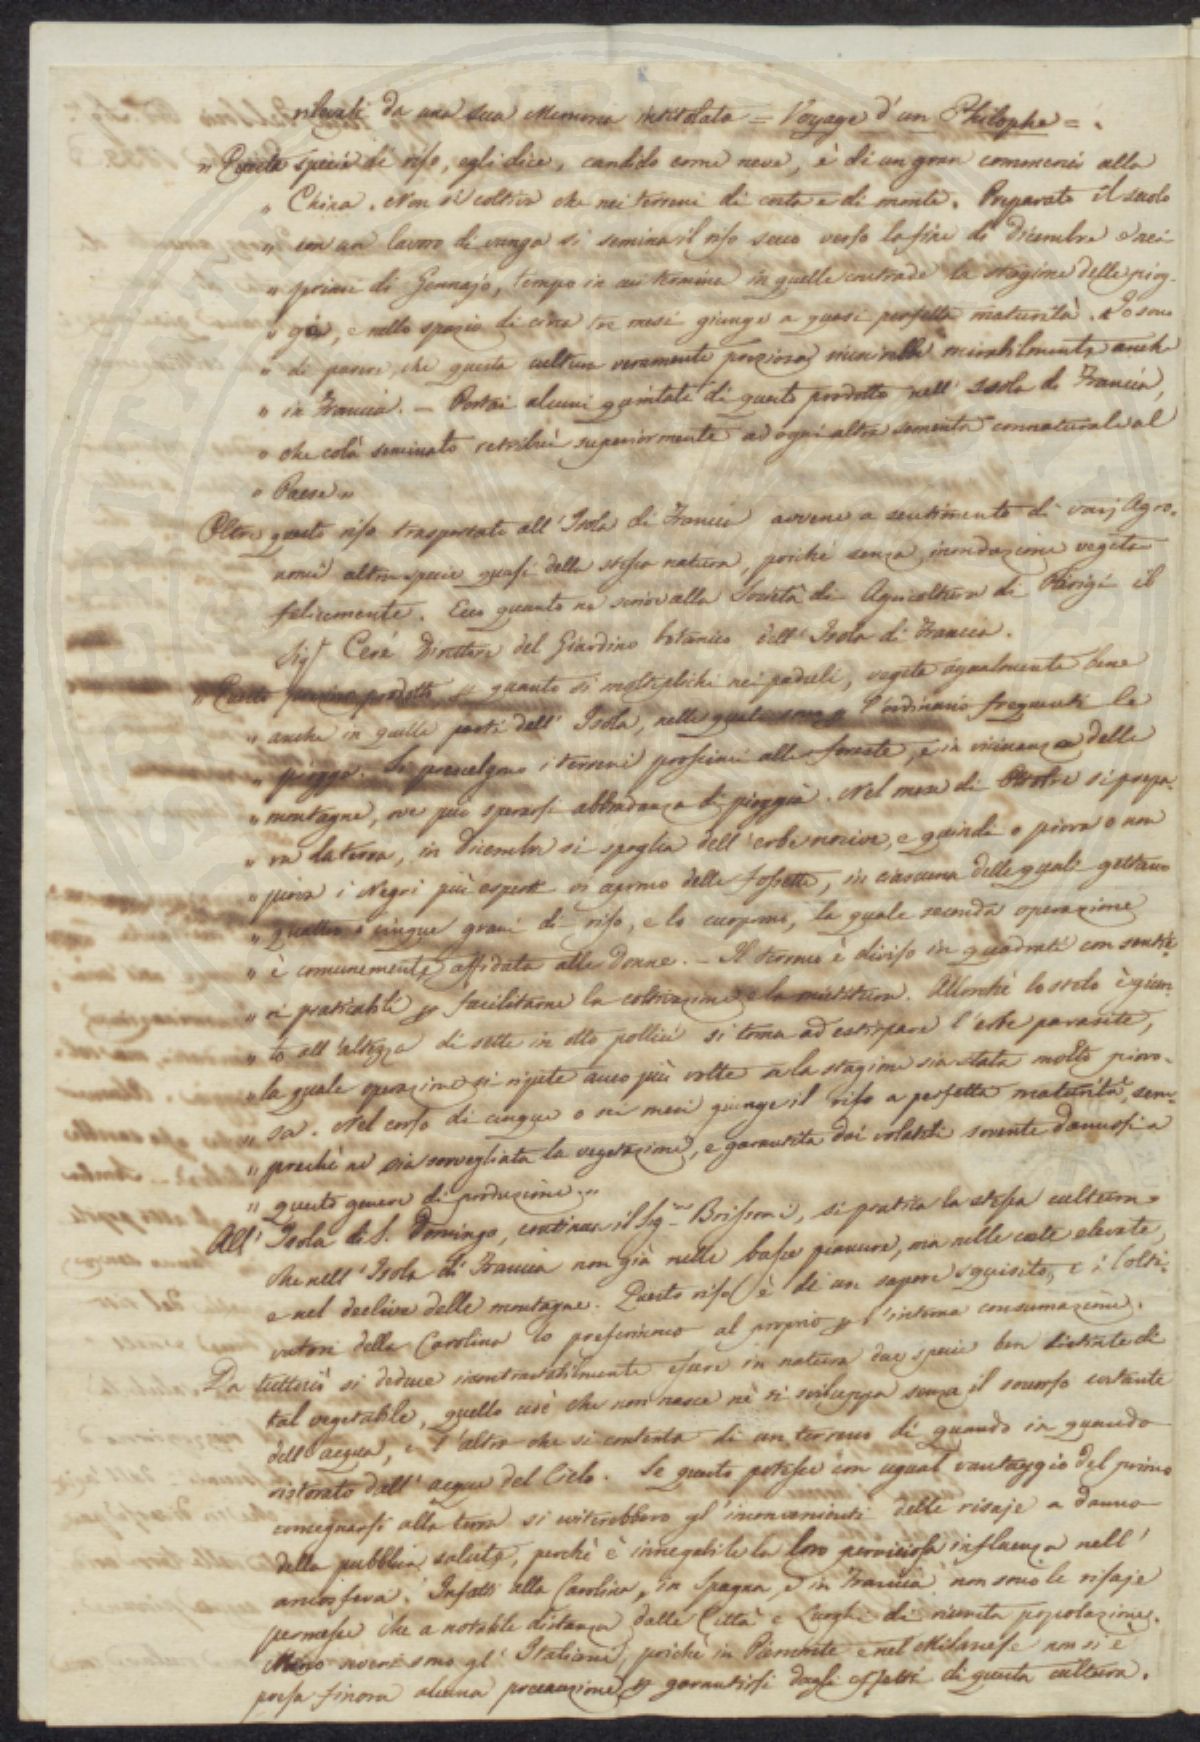 rilevati da una sua Memoria intitolata = Voyage d'un Philosophe = .
" Questa specie di riso, egli dice, candido come neve, è di un gran commercio alla
" China. Non si coltiva che nei terreni di costa e di monte. Preparato il suolo
" con un lavoro di vanga si semina il riso secco verso la fine di Dicembre o nei
" primi di Gennajo, tempo in cui termina in quelle contrade la stagione delle piog-
" gie, e nello spazio di circa tre mesi giunge a quasi perfetta maturità. Io sono
" di parere, che questa cultura veramente preziosa riuscirebbe mirabilmente anche
" in Francia. — Portai alcuni quintali di questo prodotto nell'Isola di Francia,
" che colà seminato retribuì superiormente ad ogni altra sementa connaturale al
" Paese "
Oltre questo riso trasportato all'Isola di Francia avvene a sentimento di varj Agro-
nomi altra specie quasi della stessa natura, poichè senza inondazione vegeta
felicemente. Ecco quanto ne scrive alla Società di Agricoltura di Parigi il
Sigr Ceré Direttore del Giardino botanico dell'Isola di Francia.
" Questo prodotto, p quanto si moltiplichi nei paduli, vegeta egualmente bene
" anche in quelle parti dell'Isola, nelle quali sono p l'ordinario frequenti le
" piogge. Si prescelgono i terreni prossimi alle foreste, e in vicinanza delle
" montagne, ove può sperarsi abbondanza di pioggia. Nel mese di Ottobre si prepa-
" ra la terra, in Dicembre si spoglia dell'erbe nocive, e quindi o piova o non
" piova i Negri più esperti vi aprono delle fossette, in ciascuna delle quali gettano
" quattro o cinque grani di riso, e lo cuoprono, la quale seconda operazione
" è comunemente affidata alle donne. — Il terreno è diviso in quadrati con sentie-
" ri praticabili p facilitarne la coltivazione e la mietitura. Allorchè lo stelo è giun-
" to all'altezza di sette in otto pollici si torna ad estirpare l'erbe parasite,
" la quale operazione si ripete anco più volte se la stagione sia stata molto piovo-
" sa. Nel corso di cinque o sei mesi giunge il riso a perfetta maturità, sem-
" prechè ne sia sorvegliata la vegetazione, e garantita dai volatili sovente dannosi a
" questo genere di produzione "
All'Isola di S. Domingo, continua il Sig.re Brissoni, si pratica la stessa cultura
che nell'Isola di Francia non già nelle basse pianure, ma nelle coste elevate,
e nel declive delle montagne. Questo riso è di un sapore squisito, e i Colti-
vatori della Carolina lo preferiscono al proprio p l'interna consumazione.
Da tuttociò si deduce incontrastabilmente essere in natura due specie ben distinte di
tal vegetabile, quello cioè che non nasce nè si sviluppa senza il soccorso costante
dell'acqua, e l'altro che si contenta di un terreno di quando in quando
ristorato dall'acque del Cielo. Se questo potesse con ugual vantaggio del primo
consegnarsi alla terra si eviterebbero gl'inconvenienti delle risaje a danno
della pubblica salute, perchè è innegabile la loro perniciosa influenza nell'
atmosfera. Infatti alla Carolina, in Spagna, e in Francia non sono le risaje
permesse che a notabile distanza dalle Città e Luoghi di riunita popolazione.
Meno severi sono gl'Italiani, poichè in Piemonte e nel Milanese non si è
presa finora alcuna precauzione p garantirsi dagli effetti di questa cultura.